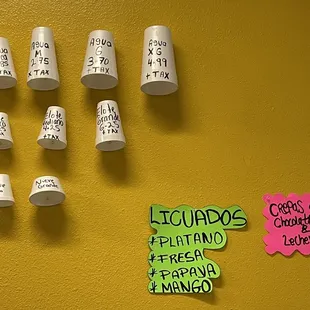 Agua
M
2.75
+ TAX
AGUA
G
3.70
+ TAX
AGUA
XG
4.99
+ TAX
+ TAX
Elote
Mediano
4.25
+ TAX
Elote
Grande
6.25
+ TAX
Nieve
Grande
LICUADOS
*PLATANO
*FRESA
*PAPAYA
*MANGO
CREPAS
Chocolate
&
Leche